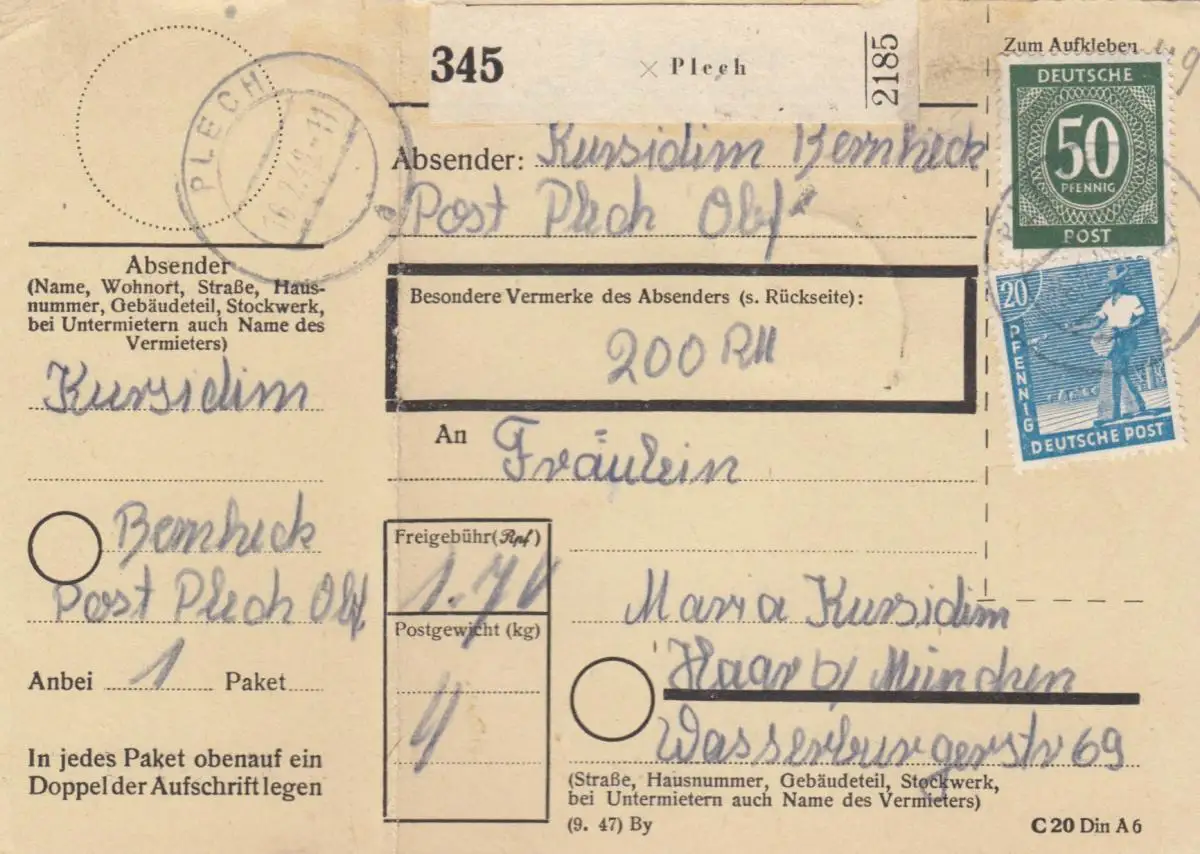 345 × Plech 2185
Zum Aufkleben
DEUTSCHE
50
PFENNIG
POST
20
PFENNIG
DEUTSCHE POST
PLECH
16.2.48-11
a
Absender: Kursidim Bernheck
Post Plech Obf
Besondere Vermerke des Absenders (s. Rückseite):
200 RM
Absender
(Name, Wohnort, Straße, Haus-
nummer, Gebäudeteil, Stockwerk,
bei Untermietern auch Name des
Vermieters)
Kursidim
Bernheck
Post Plech Obf
Anbei 1 Paket
In jedes Paket obenauf ein
Doppel der Aufschrift legen
An Fräulein
Freigebühr (Rpf)
1.70
Postgewicht (kg)
4
Maria Kursidim
Haar b/ München
Wasserburgerstr 69
(Straße, Hausnummer, Gebäudeteil, Stockwerk,
bei Untermietern auch Name des Vermieters)
(9. 47) By
C 20 Din A 6